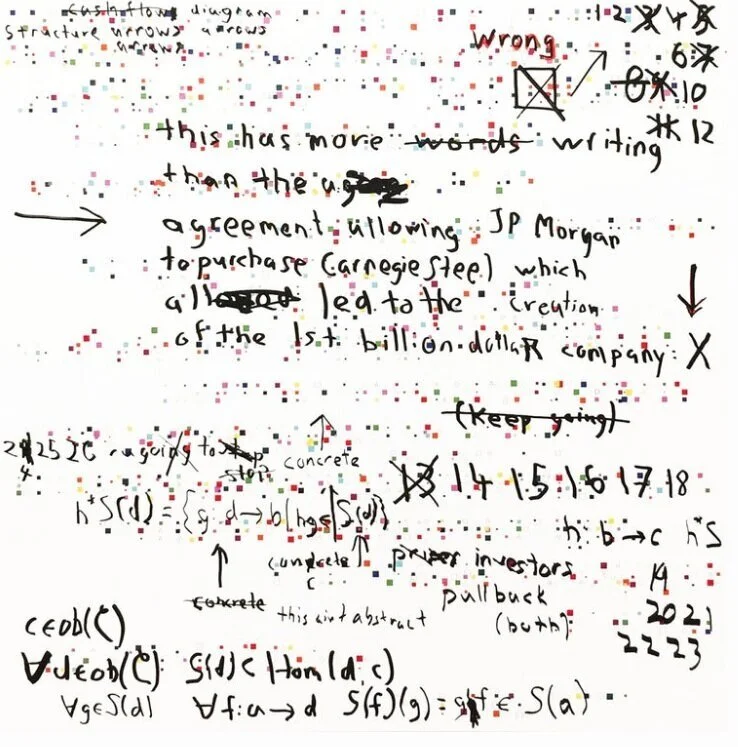 cash flow diagram
structure arrows arrows
arrows
Wrong
1 2 3 4 5
6 7
8 9 10
11 12
this has more words writing
than the
agreement allowing JP Morgan
to purchase Carnegie Steel which
led to the creation
of the 1st billion dollar company: X
(Keep going)
25 26 going to stop
concrete
13 14 15 16 17 18
h*S(d) = {g: d→b | hg∈S(d)}
h: b→c h*S
concrete
C
investors
19
concrete
this aint abstract
pullback
(both):
20 21
22 23
c∈ob(C)
∀d∈ob(C) S(d)⊂Hom(d,c)
∀g∈S(d) ∀f:a→d S(f)(g)=gf∈S(a)